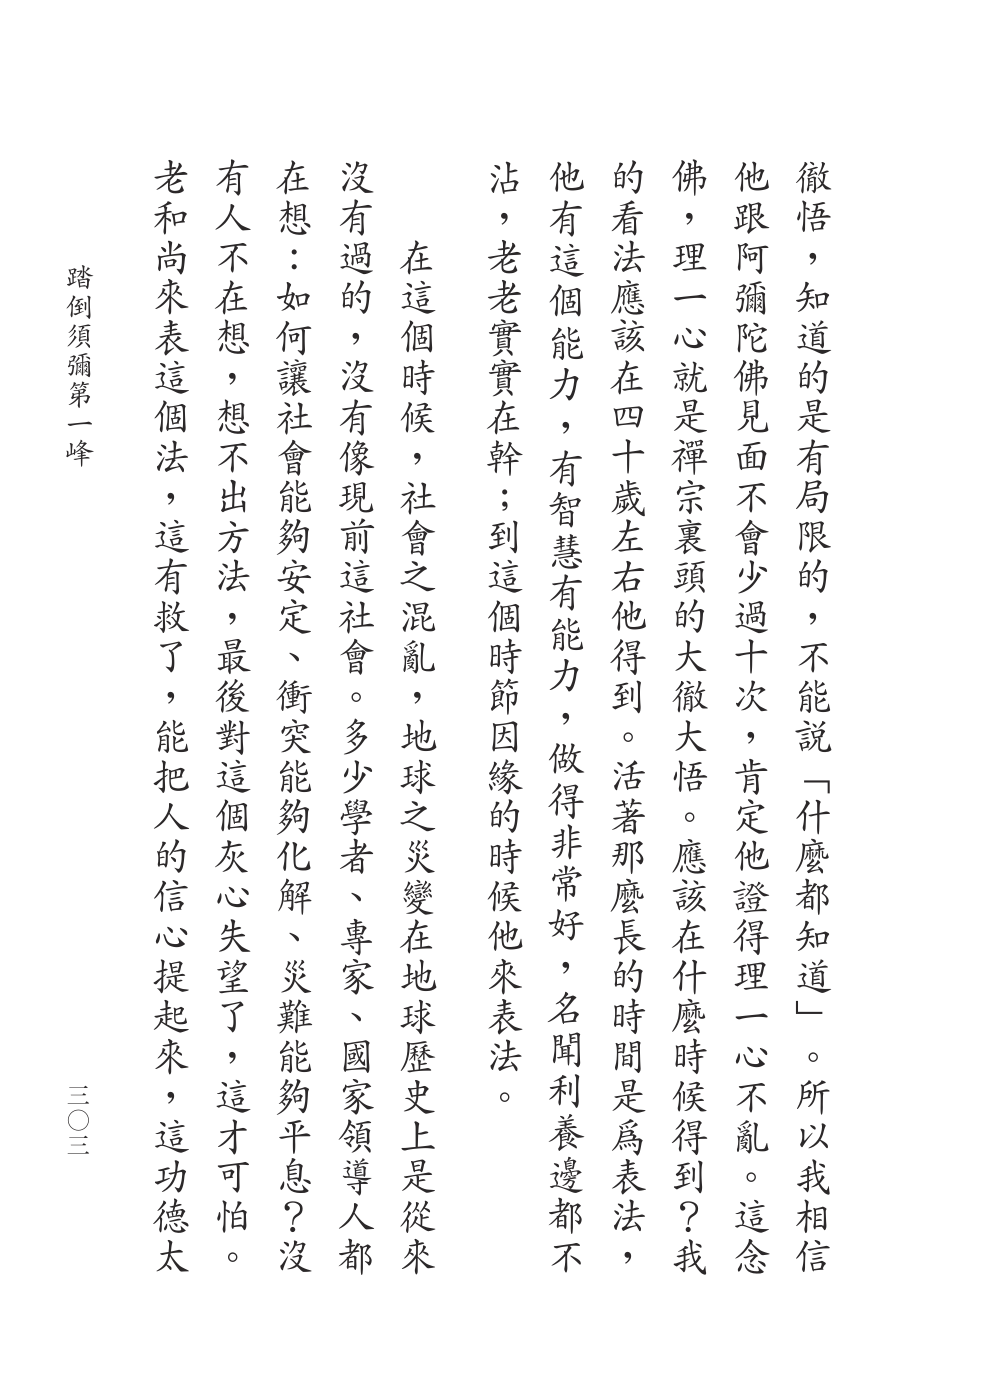 徹悟，知道的是有局限的，不能説「什麼都知道」。所以我相信
他跟阿彌陀佛見面不會少過十次，肯定他證得理一心不亂。這念
佛，理一心就是禪宗裏頭的大徹大悟。應該在什麼時候得到？我
的看法應該在四十歲左右他得到。活著那麼長的時間是爲表法，
他有這個能力，有智慧有能力，做得非常好，名聞利養邊都不
沾，老老實實在幹；到這個時節因緣的時候他來表法。
在這個時候，社會之混亂，地球之災變在地球歷史上是從來
沒有過的，沒有像現前這社會。多少學者、專家、國家領導人都
在想：如何讓社會能夠安定、衝突能夠化解、災難能夠平息？沒
有人不在想，想不出方法，最後對這個灰心失望了，這才可怕。
老和尚來表這個法，這有救了，能把人的信心提起來，這功德太
踏倒須彌第一峰
三〇三